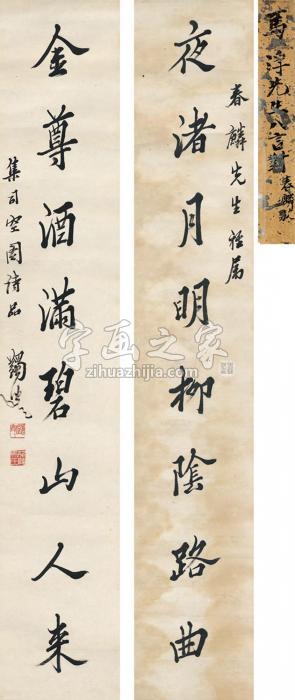 馬浮先生八言對
春麟
春麟先生雅屬
夜渚月明柳陰路曲
金尊酒滿碧山人来
集司空圖詩品
蠲叟
字画之家
zihuazhijia.com